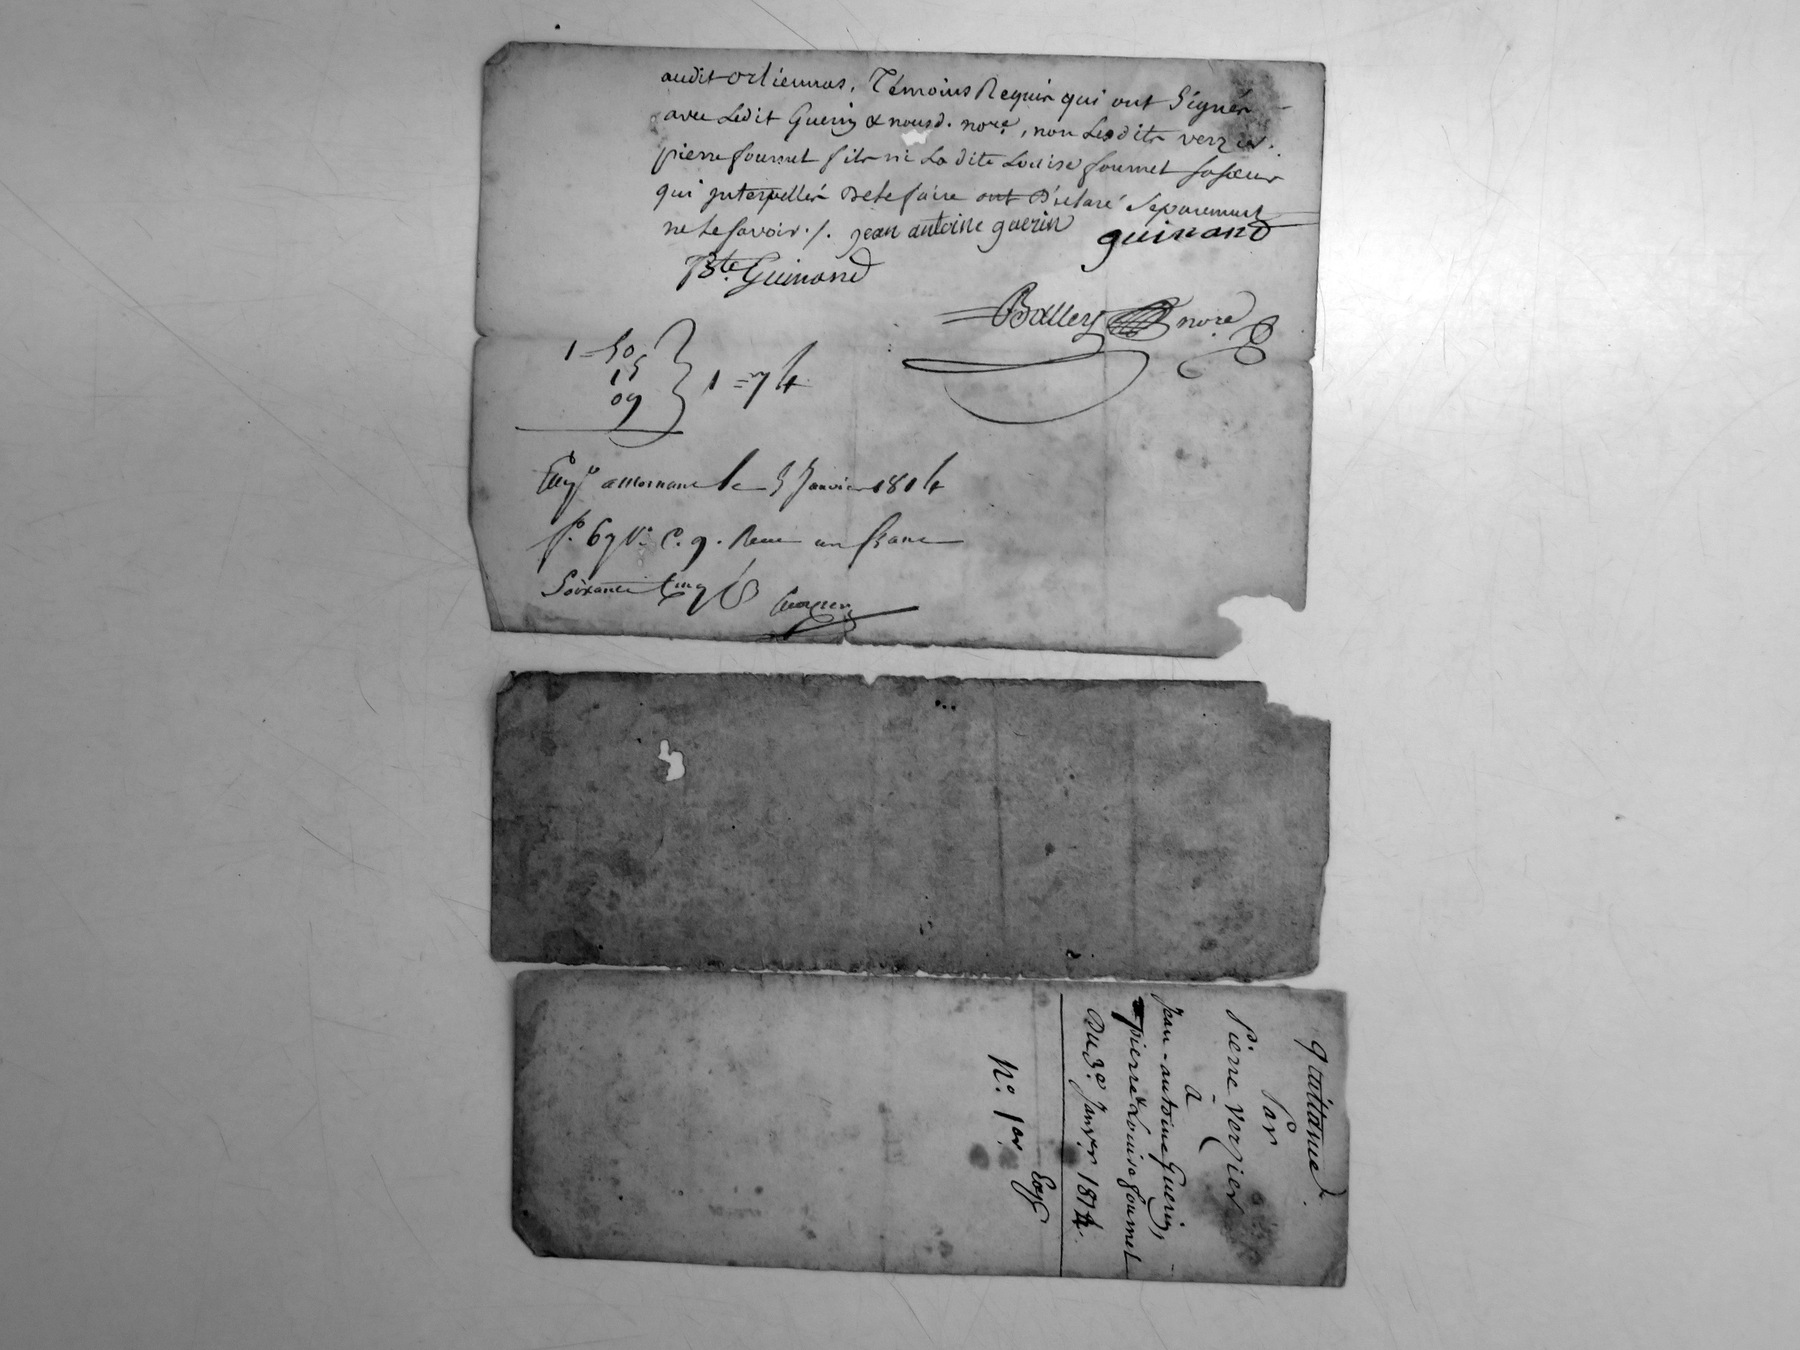 audit orliennas, Témoins Requis qui ont Signés
avec Ledit Guerin & nousd. nore, non Lesdits verzier.
pierre fournet fils ni La dite Louise fournet sa sœur
qui interpellés de le faire ont Déclaré Séparement
ne le savoir ./. jean antoine guerin guinand
Bte. Guinand
Balley nore
1 = 50
15
09
1 = 74
Enrgé a Mornant le 5 Janvier 1814
fo. 69 Vo. C. 9. Recu un franc
Soixante Cinq
quittance
Par
Pierre Verzier
à
Jean-antoine Guerin,
pierre & Louise fournet
Du 3e. Janver 1814.
No. 1er.
Exp.